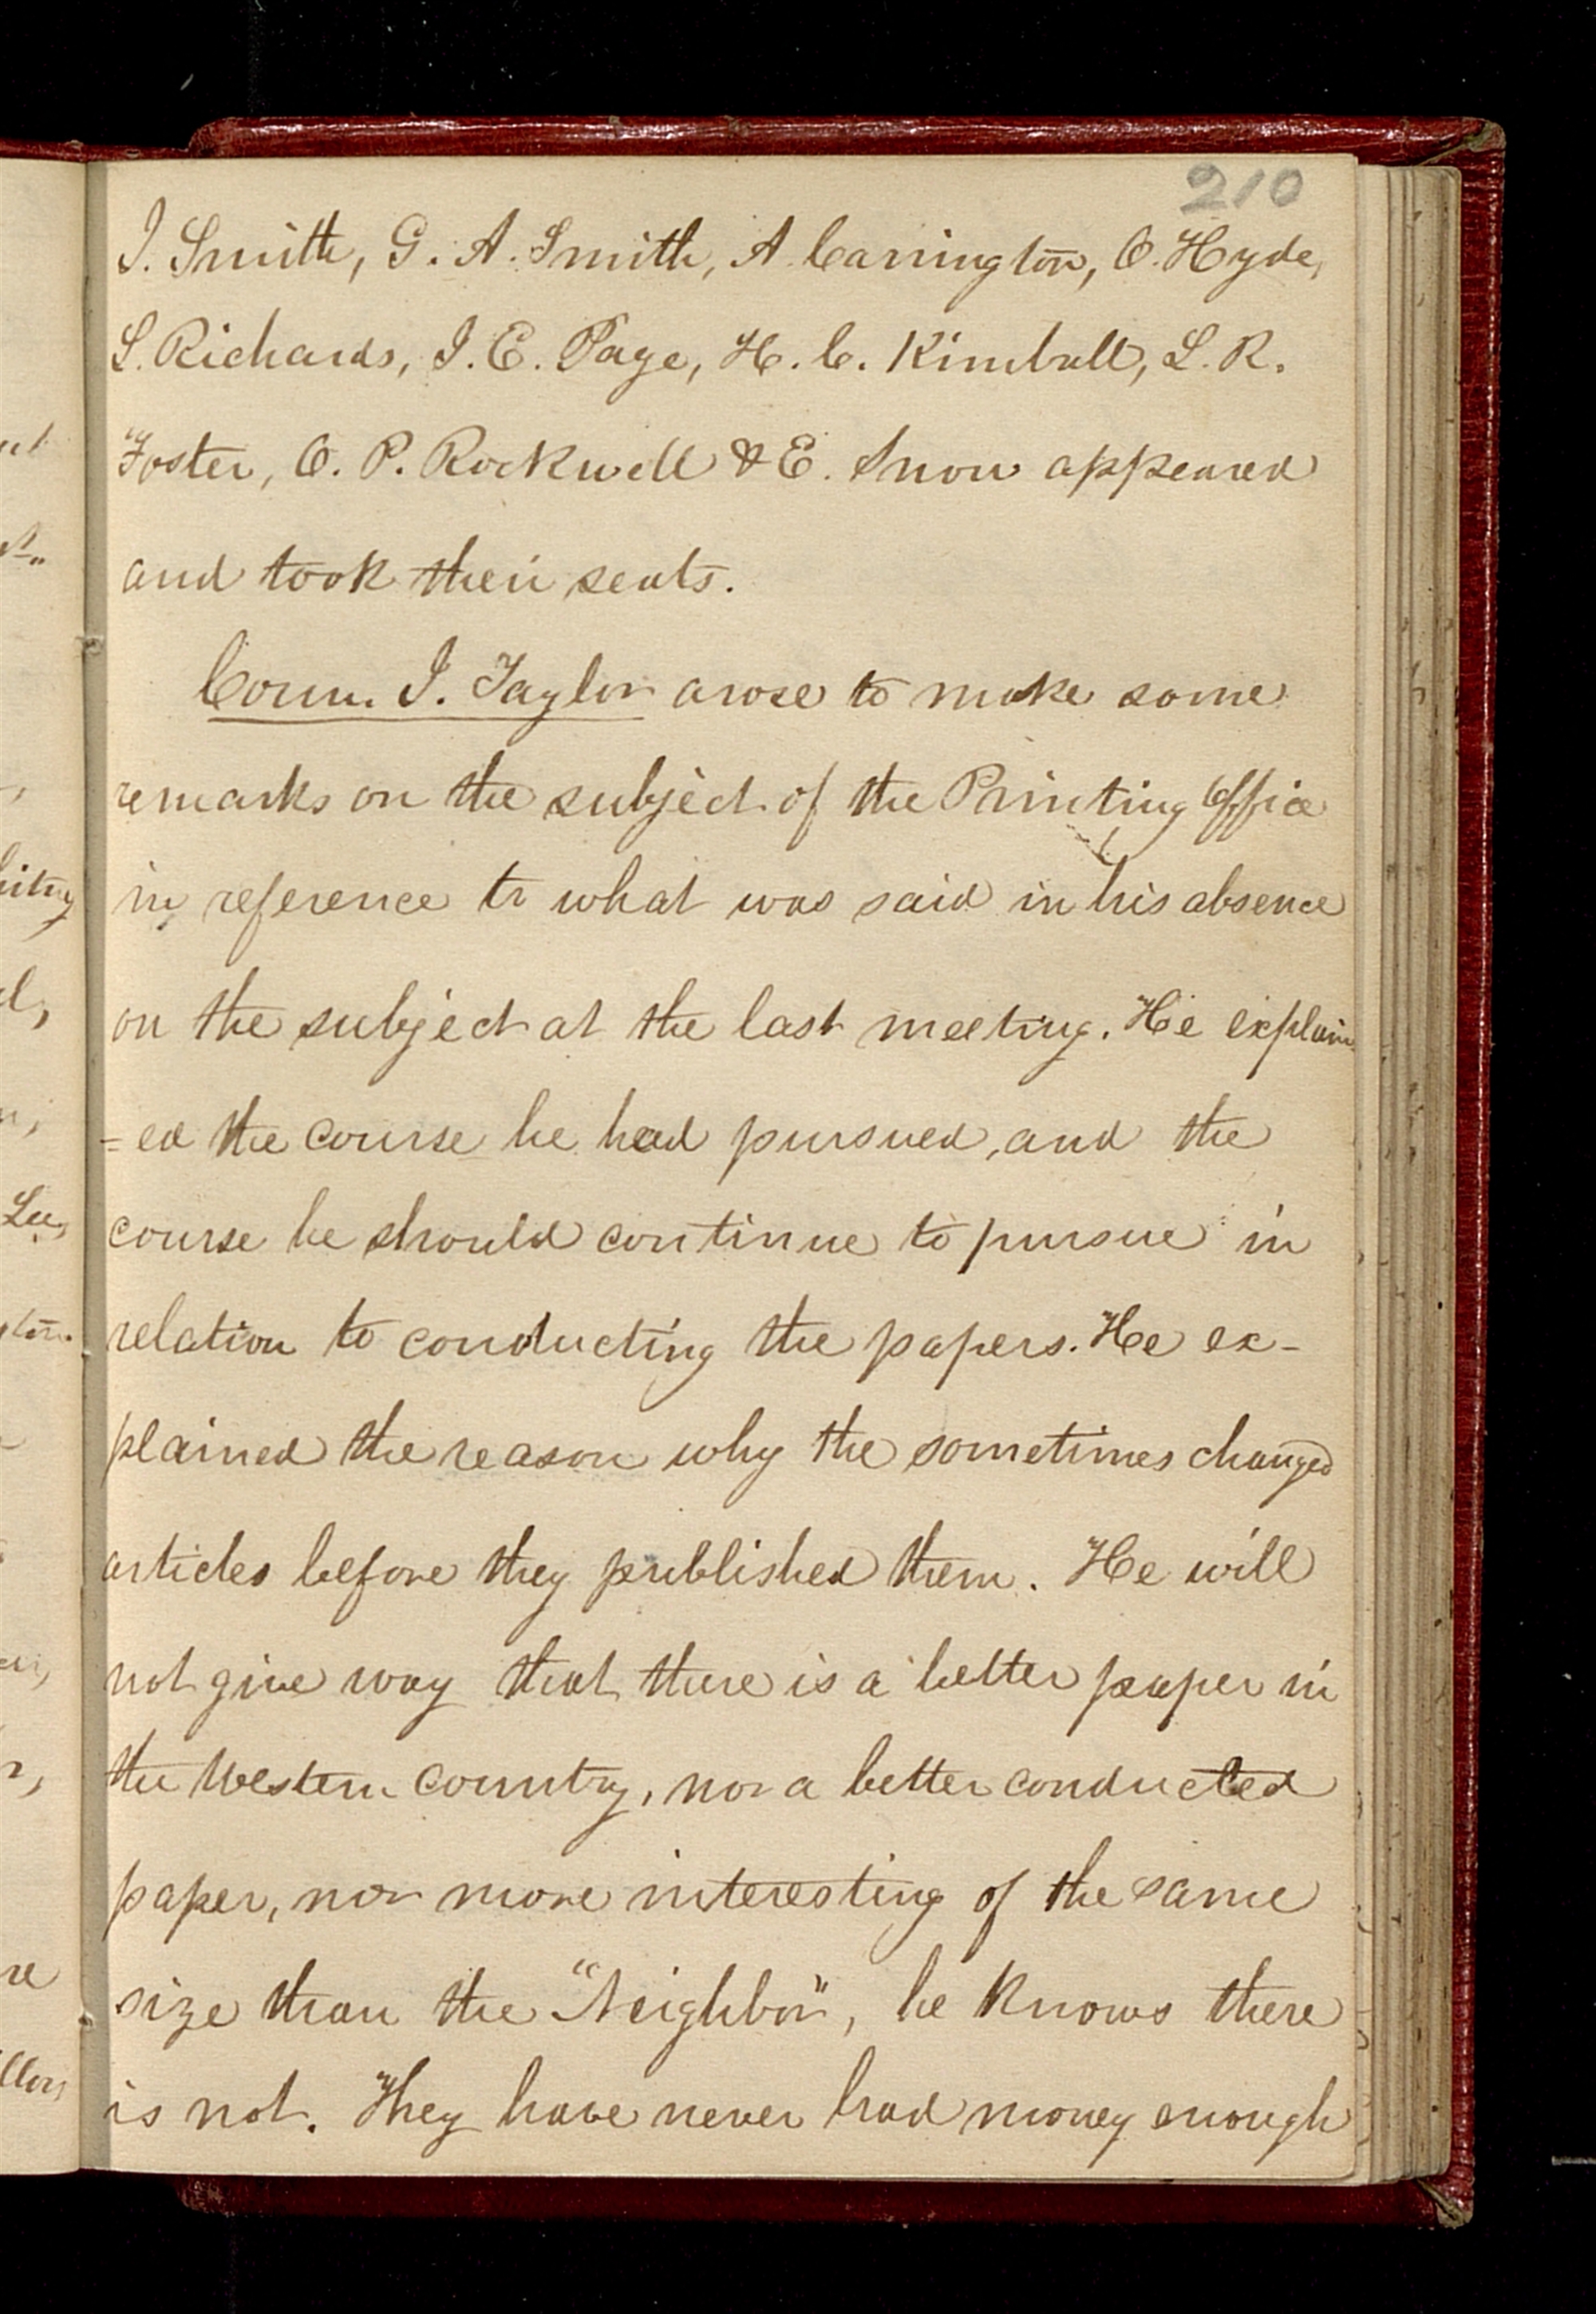 210
J. Smith, G. A. Smith, A Carrington, O. Hyde,
L. Richards, J. E. Page, H. C. Kimball, L. R.
Foster, O. P. Rockwell & E. Snow appeared
and took their seats.
Coun. J. Taylor arose to make some
remarks on the subject of the Printing Office
in reference to what was said in his absence
on the subject at the last meeting. He explain
=ed the course he had pursued, and the
course he should continue to pursue in
relation to conducting the papers. He ex-
plained the reason why the sometimes changed
articles before they published them. He will
not give way that there is a better paper in
the Western country, nor a better conducted
paper, nor more interesting of the same
size than the "Neighbor", he knows there
is not. They have never had money enough